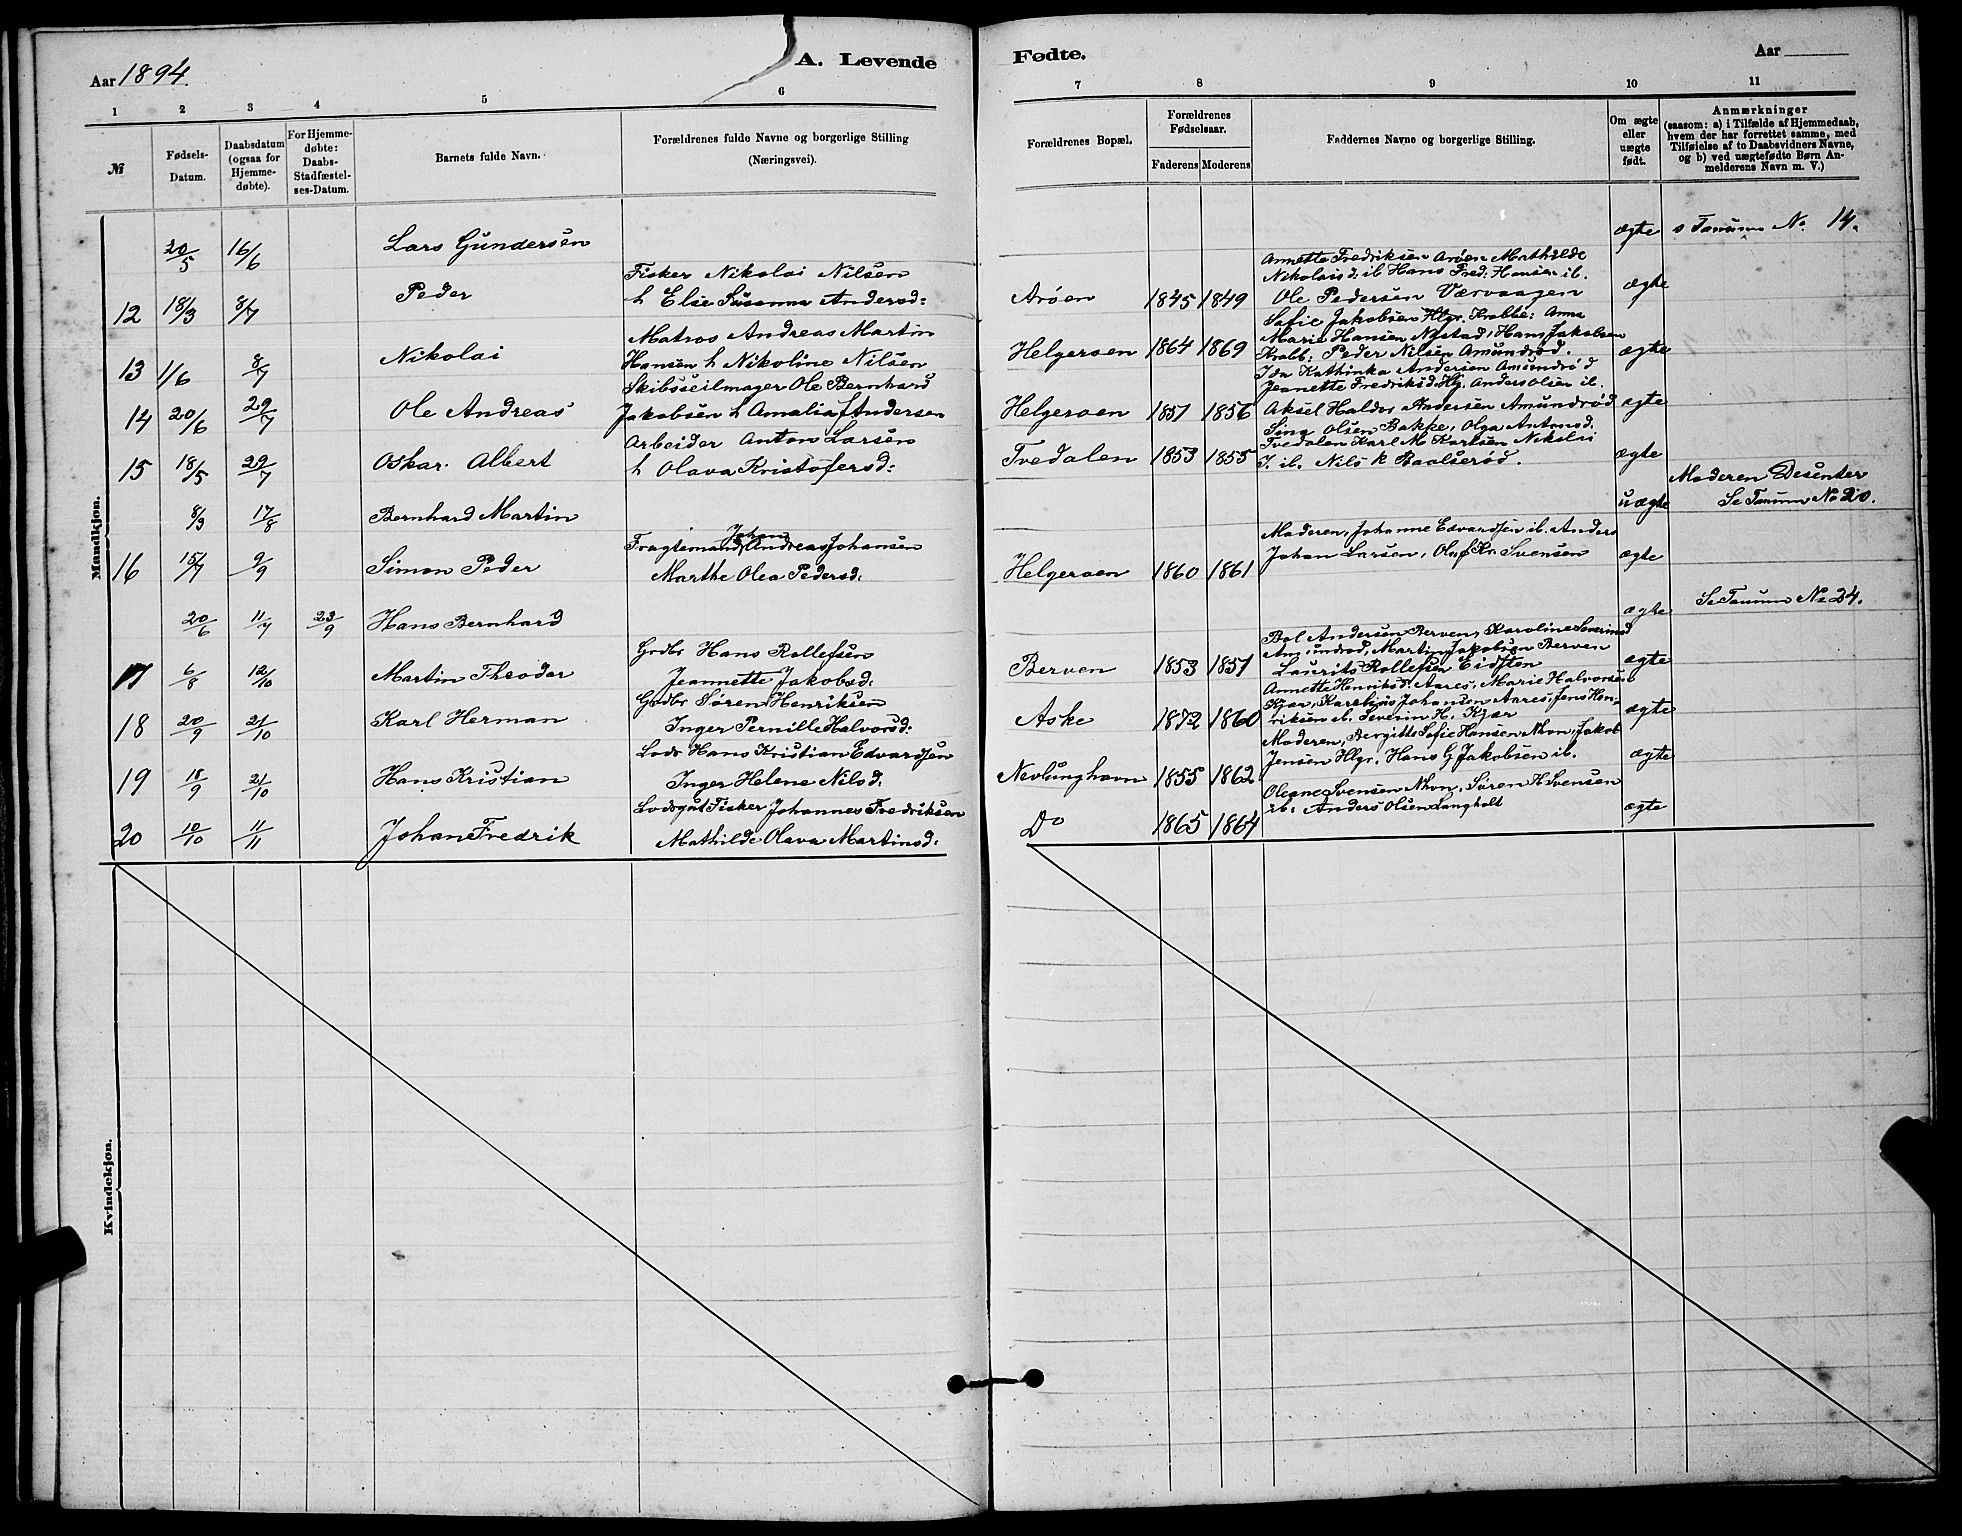 Aar 1894.
A. Levende
Fødte.
Aar
1 2 3 4 5 6
7 8 9 10 11
№
Fødsels-
Datum.
Daabsdatum
(ogsaa for
Hjemme-
døbte).
For Hjemme-
døbte:
Daabs-
Stadfæstel-
ses-Datum.
Barnets fulde Navn.
Forældrenes fulde Navne og borgerlige Stilling
(Næringsvei).
Forældrenes Bopæl.
Forældrenes
Fødselsaar.
Faderens Moderens
Faddernes Navne og borgerlige Stilling.
Om ægte
eller
uægte
født.
Anmærkninger
(saasom: a) i Tilfælde af Hjemmedaab,
hvem der har forrettet samme, med
Tilføielse af to Daabsvidners Navne,
og b) ved uægtefødte Børn An-
melderens Navn m. V.)
Mandkjøn.
20/5 16/6 Lars Gundersen
ægte s Tanum No. 14.
12 18/3 8/7 Peder
Fisker Nikolai Nilsen
h Else Susanna Andersd:
Arøen 1845 1849
Annette Fredriksen Arøen Mathilde
Nikolaisd: ib Hans Fred: Hansen ib.
Ole Pedersen Værvaagen
ægte
13 1/6 8/7 Nikolai
Matros Andreas Martin
Hansen h Nikoline Nilsen
Helgeroen 1864 1869
Safie Jakobsen Hlgr. Krabbe: Anna
Marie Hansen Nystad, Hans Jakobsen
Krabb: Peder Nilsen Amundrød.
ægte
14 20/6 29/7 Ole Andreas
Skibsseilmager Ole Bernhard
Jakobsen h Amalia Andersen
Helgeroen 1851 1856
Ida Kathinka Andersen Amundrød
Jeanette Fredriksd. Hlg. Anders Olsen ib.
Aksel Haldor Andersen Amundrød
ægte
15 18/5 29/7 Oskar Albert
Arbeider Anton Larsen
h Olava Kristofersd:
Tvedalen 1853 1855
Sina Olsen Bakke, Olga Antonsd:
Tvedalen Karl M Karlsen Nikolai
J. ib. Nils K Baalserød.
ægte
8/3 17/8 Bernhard Martin
uægte
Moderen Desenter
Se Tanum No 20.
16 15/7 9/9 Simon Peder
Johan
Fragtemand Andreas Johansen
Marthe Olea Pedersd:
Helgeroen 1860 1861
Moderen, Johanne Edvardsen ib. Anders
Johan Larsen, Oluf Kr. Svensen
ægte
20/6 11/7 23/9 Hans Bernhard
ægte Se Tanum No 24.
17 6/8 12/10 Martin Theodor
Grdbr Hans Rollefsen
Jeannette Jakobsd:
Berven 1853 1857
Bol Andersen Berven, Karoline Severinsd
Amundrød, Martin Jakobsen Berven
Laurits Rollefsen Eidsten
ægte
18 20/9 21/10 Karl Herman
Grdbr Søren Henriksen
Inger Pernille Halvorsd:
Aske 1872 1860
Annette Henriksd. Aares, Marie Halvorsen
Kjær, Karelius Johansen Aares, Jens Hen-
riksen ib. Severin H. Kjær
ægte
19 18/9 21/10 Hans Kristian
Lods Hans Kristian Edvardsen
Inger Helene Nilsd:
Nevlunghavn 1855 1862
Moderen, Bergitte Sofie Hansen Nhvn, Jakob
Jensen Hlgr. Hans G Jakobsen ib.
ægte
20 10/10 11/11 Johan Fredrik
Lodsgut Fisker Johannes Fredriksen
Mathilde Olava Martinsd:
Do 1865 1864
Oleane Svensen Nhvn, Søren H Svensen
ib: Anders Olsen Langholt
ægte
Kvindekjøn.